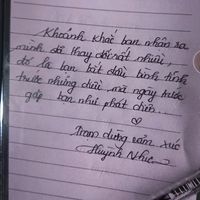 Khoảnh khắc bạn nhận ra
mình đã thay đổi rất nhiều,
đó là bạn bắt đầu bình tĩnh
trước những chuyện mà ngày trước
gặp bạn như phát điên...
Trạm dừng cảm xúc
Huỳnh Như